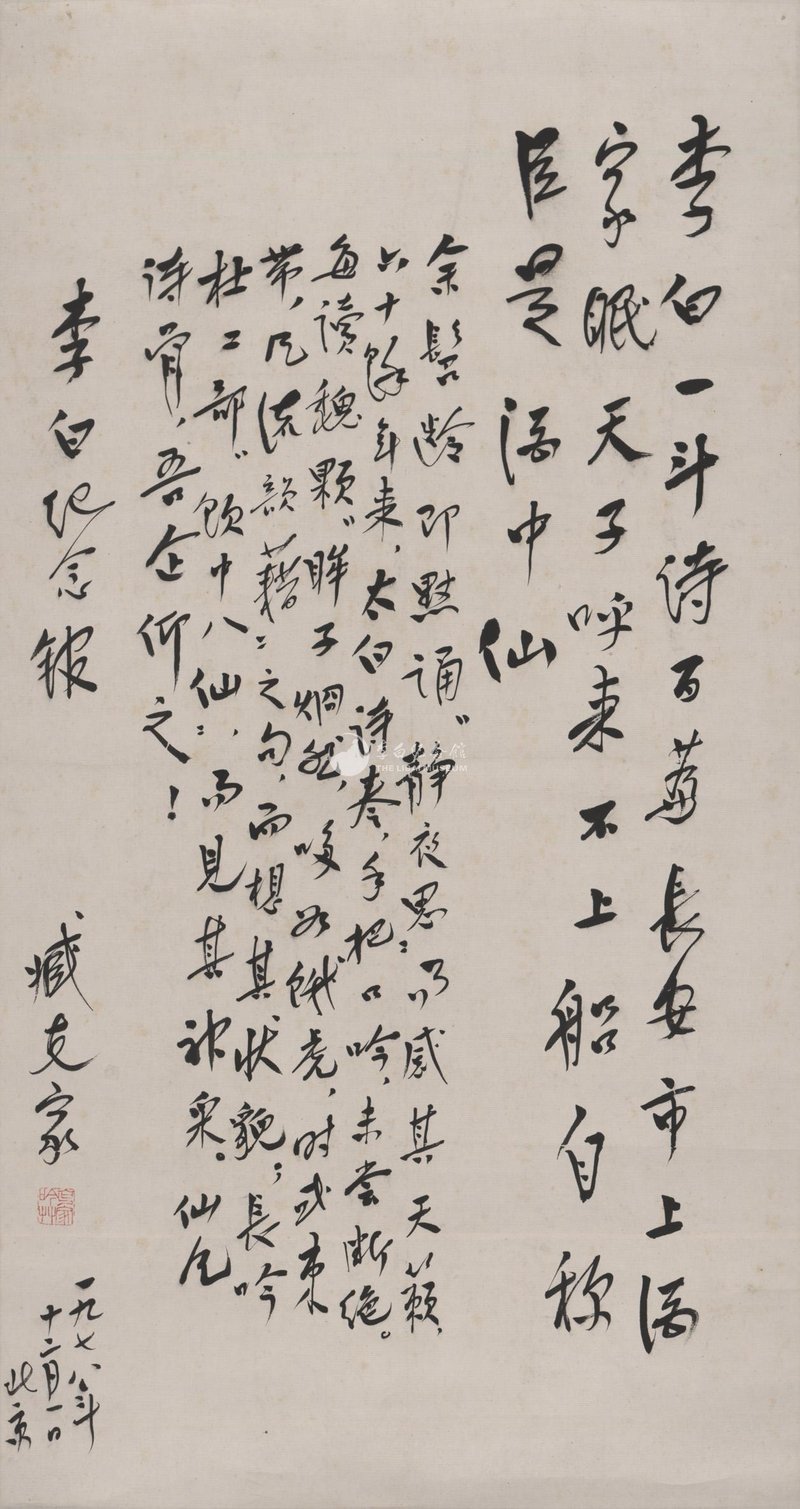 李白一斗诗百萹長安市上酒
家眠天子呼来不上船自称
臣是酒中仙
余髫龄即默诵"静夜思"，而感其天籁，
六十馀年来，太白诗卷，手把口吟，未尝断绝。
每讀魏颗"眸子炯然，哆如饿虎，时或束
带，风流韵藉"之句，而想其状貌；長吟
杜工部"饮中八仙"，而見其神采。仙风
诗骨，吾企仰之！
李白纪念馆
臧克家
一九七八年
十二月一日
北京
李白纪念馆
THE LIBAI MUSEUM